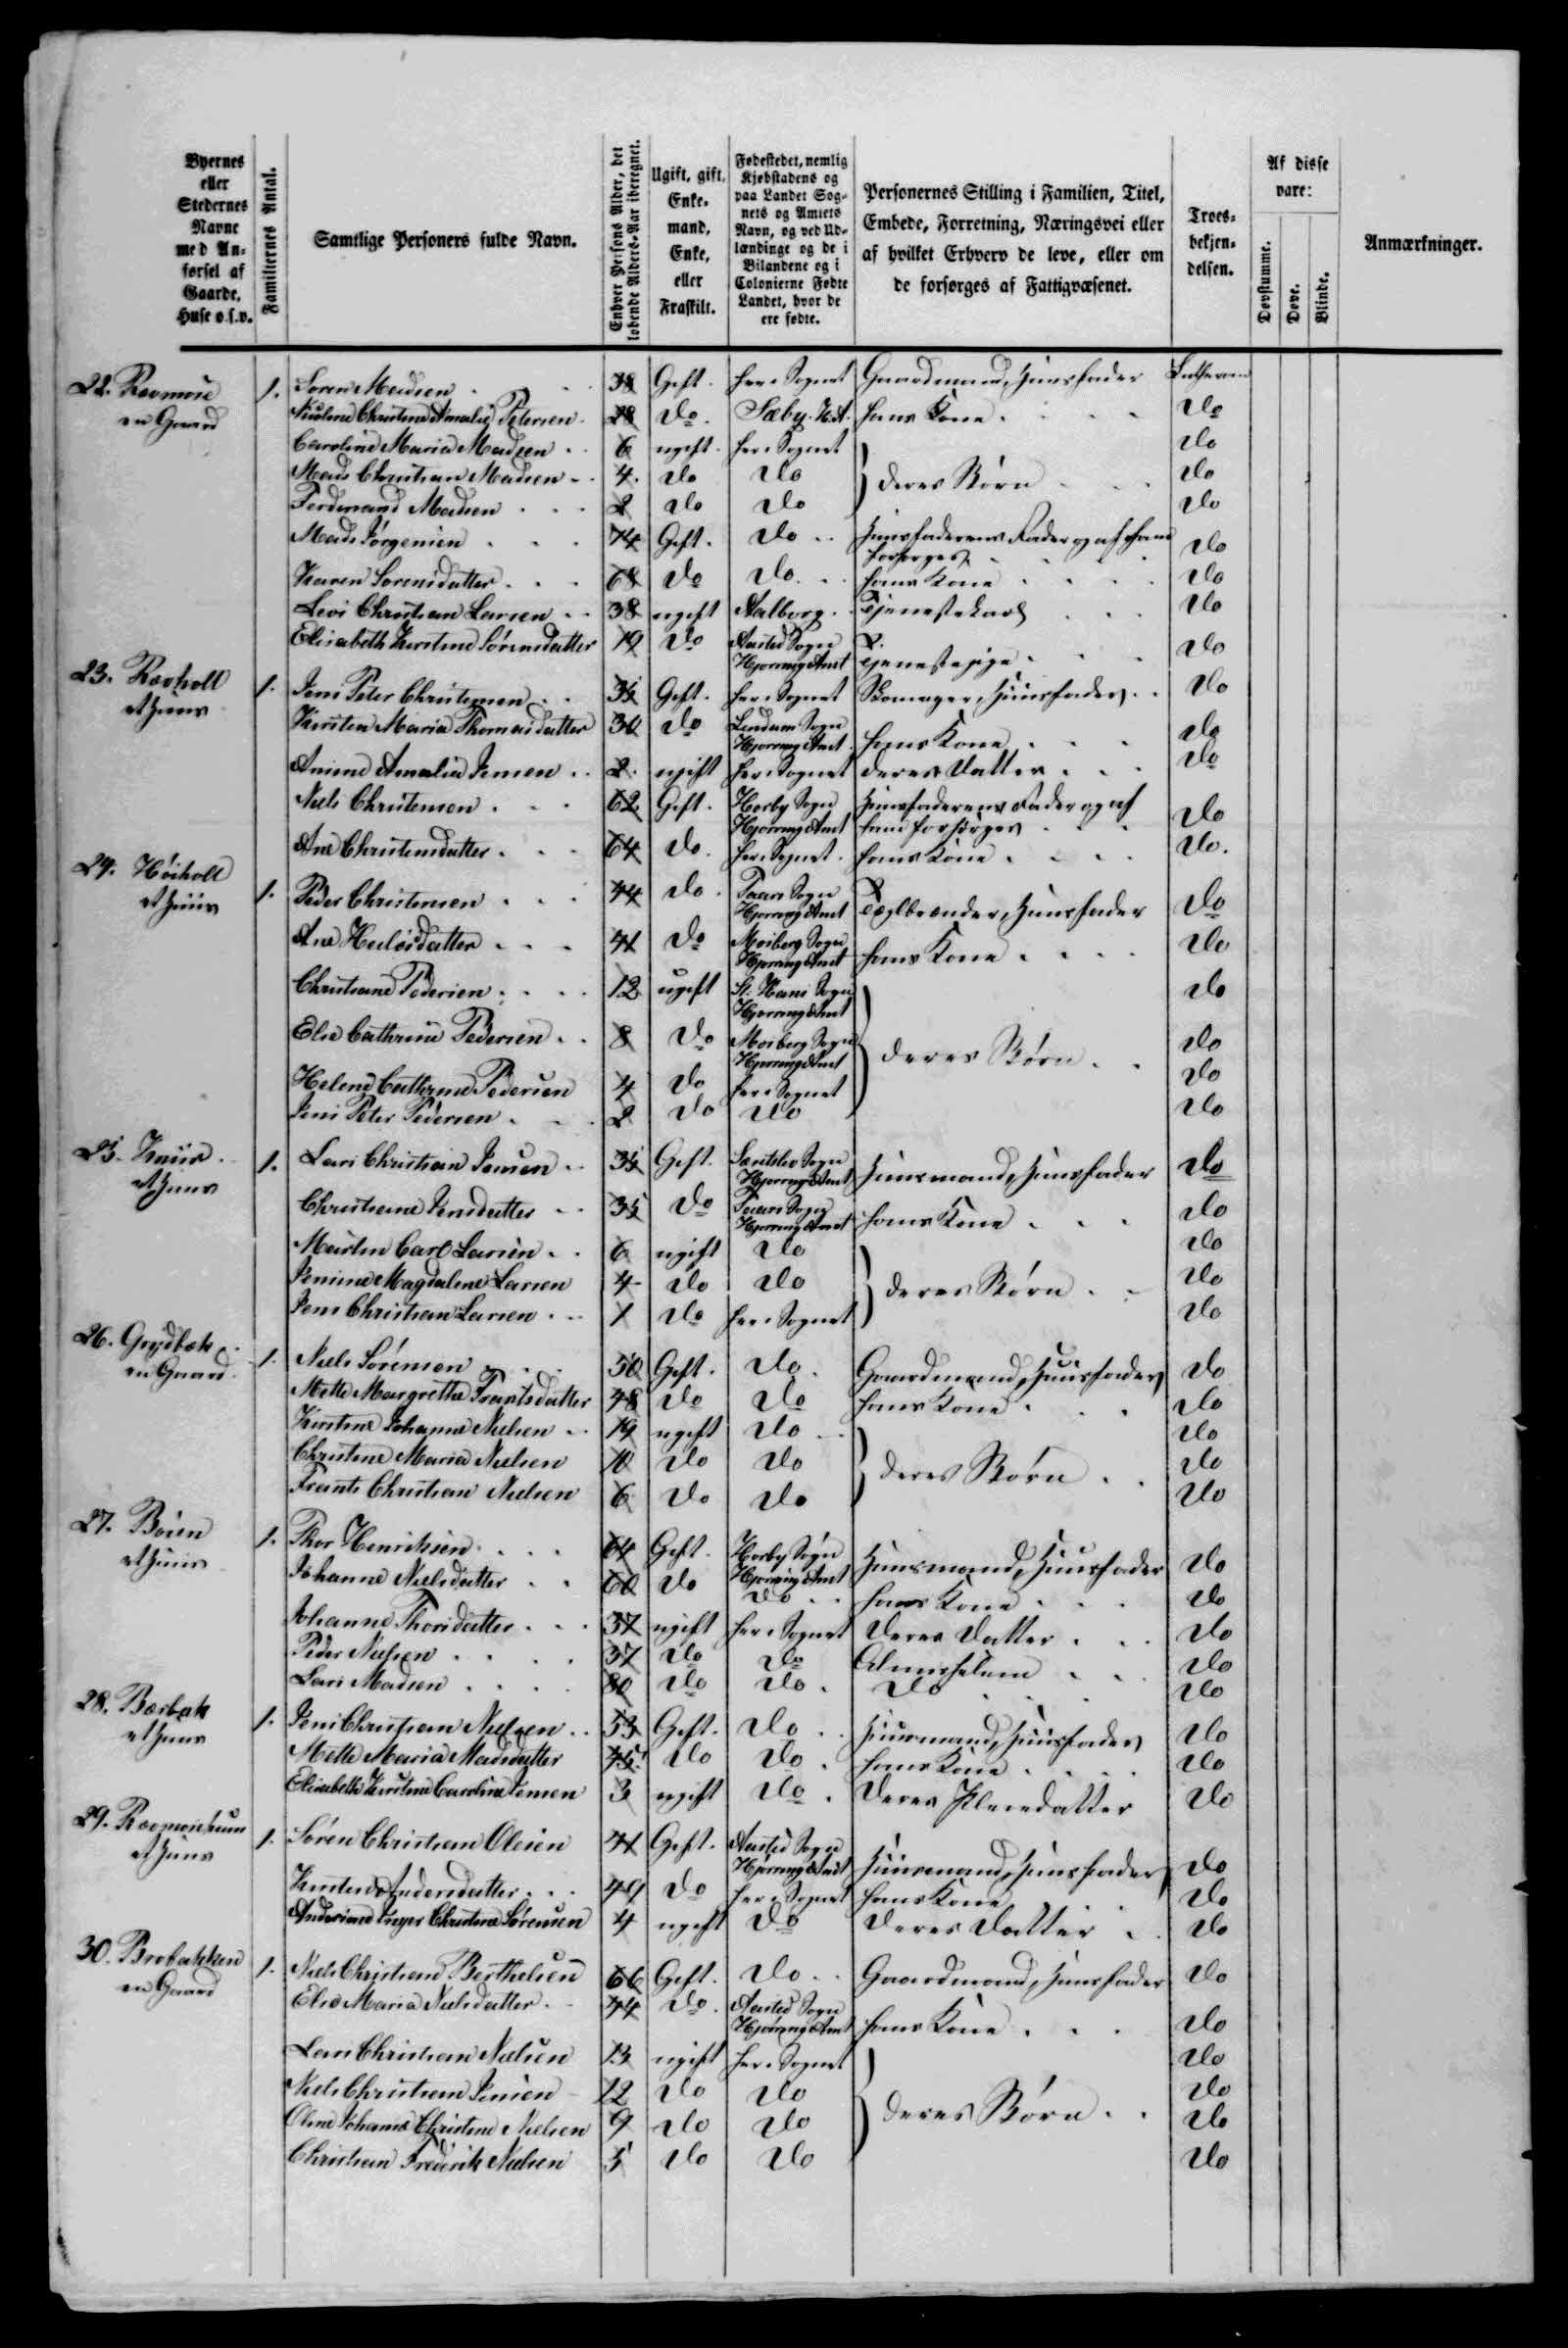 Byernes eller Stedernes Navne med Anførsel af Gaarde, Huse o.s.v.
Familiernes Antal.
Samtlige Personers fulde Navn.
Enhver Persons Alder, det løbende Alders-Aar iberegnet.
Ugift, gift, Enkemand, Enke, eller Fraskilt.
Fødestedet, nemlig Kjøbstadens og paa Landet Sognets og Amtets Navn, og ved Udlændinge og de i Bilandene og i Colonierne Fødte Landet, hvor de ere fødte.
Personernes Stilling i Familien, Titel, Embede, Forretning, Næringsvei eller af hvilket Erhverv de leve, eller om de forsørges af Fattigvæsenet.
Troesbekjendelsen.
Af disse vare:
Døvstumme.
Døve.
Blinde.
Anmærkninger.
22. Ravmose en Gaard 1. Søren Madsen 38 Gift. her i Sognet Gaardmand, Huusfader Lutheran
Christine Amalie Petersen 28 do. Sæby. H.A. hans Kone do
Caroline Maria Madsen 6 ugift. her i Sognet do
Mads Christian Madsen 4. do do deres Børn do
Ferdinand Madsen 2 do do do
Mads Jørgensen 74 Gift. do Huusfaderens Fader og af ham forsørges do
Karen Sørensdatter 68 do do hans Kone do
Levi Christian Larsen 38 ugift Aalborg Tjenestekarl do
Elisabeth Kirstine Sørensdatter 19 do Aasted Sogn Hjørring Amt Tjenestepige do
23. Ravholt et Huus 1. Jens Peter Christensen 35 Gift. her i Sognet Skomager, Huusfader do
Kirsten Maria Thomasdatter 34 do Lendum Sogn Hjørring Amt hans Kone do
Amalia Jensen 2. ugift her i Sognet deres Datter do
Niels Christensen 62 Gift. Horby Sogn Hjørring Amt Huusfaderens Fader og af ham forsørges do
Ane Christensdatter 64 do. her i Sognet. hans Kone do.
24. Høiholt et Huus 1. Peder Christensen 44 do. Taars Sogn Hjørring Amt Teglbrænder, Huusfader do
Ane 41 do Mosberg Sogn Hjørring Amt hans Kone do
Christiane Pedersen 12 ugift St. Hans Sogn Hjørring Amt do
Else Cathrine Pedersen 8 do Mosberg Sogn Hjørring Amt deres Børn do
Helene Cathrine Pedersen 4 do her i Sognet do
Jens Peter Pedersen 2 do do do
25. et Huus 1. Lars Christian Jensen 35 Gift. Sogn Hjørring Amt Huusmand, Huusfader do
Christiane Jensdatter 35 do Taars Sogn Hjørring Amt hans Kone do
Martin Carl Larsen 6 ugift do do
Jensine Magdalene Larsen 4 do do deres Børn do
Jens Christian Larsen 1 do her i Sognet do
26. Grydbæk en Gaard 1. Niels Sørensen 50 Gift. do. Gaardmand, Huusfader do
Mette Margrethe Frantsdatter 48 do do hans Kone do
Kirstine Johanne Nielsen 19 ugift do do
Christine Maria Nielsen 10 do do deres Børn do
Frants Christian Nielsen 6 do do do
27. et Huus 1. Thor Henriksen 64 Gift. Horby Sogn Hjørring Amt Huusmand, Huusfader do
Johanne Nielsdatter 60 do do hans Kone do
Johanne Thorsdatter 37 ugift her i Sognet deres Datter do
Peder Nielsen 37 do do Almisselem do
Lars Madsen 80 do do. do do
28. Bærbak et Huus 1. Jens Christian Nielsen 53 Gift. do Huusmand, Huusfader do
Mette Maria Madsdatter 45. do do. hans Kone do
Elisabeth Kirstine Caroline Jensen 3 ugift do. deres Pleiedatter do
29. et Huus 1. Søren Christian Olesen 41 Gift. Aasted Sogn Hjørring Amt Huusmand, Huusfader do
Kirsten Andersdatter 49 do her i Sognet hans Kone do
Andersine Inger Christine Sørensen 4 ugift do deres Datter do
30. Brobakken en Gaard 1. Niels Christian Berthelsen 66 Gift. do Gaardmand, Huusfader do
Else Maria Nielsdatter 44 do. Aasted Sogn Hjørring Amt hans Kone do
Lars Christian Nielsen 13 ugift her i Sognet do
Niels Christian Jensen 12 do do deres Børn do
Oline Johanne Christine Nielsen 9 do do do
Christian Frederik Nielsen 5 do do do